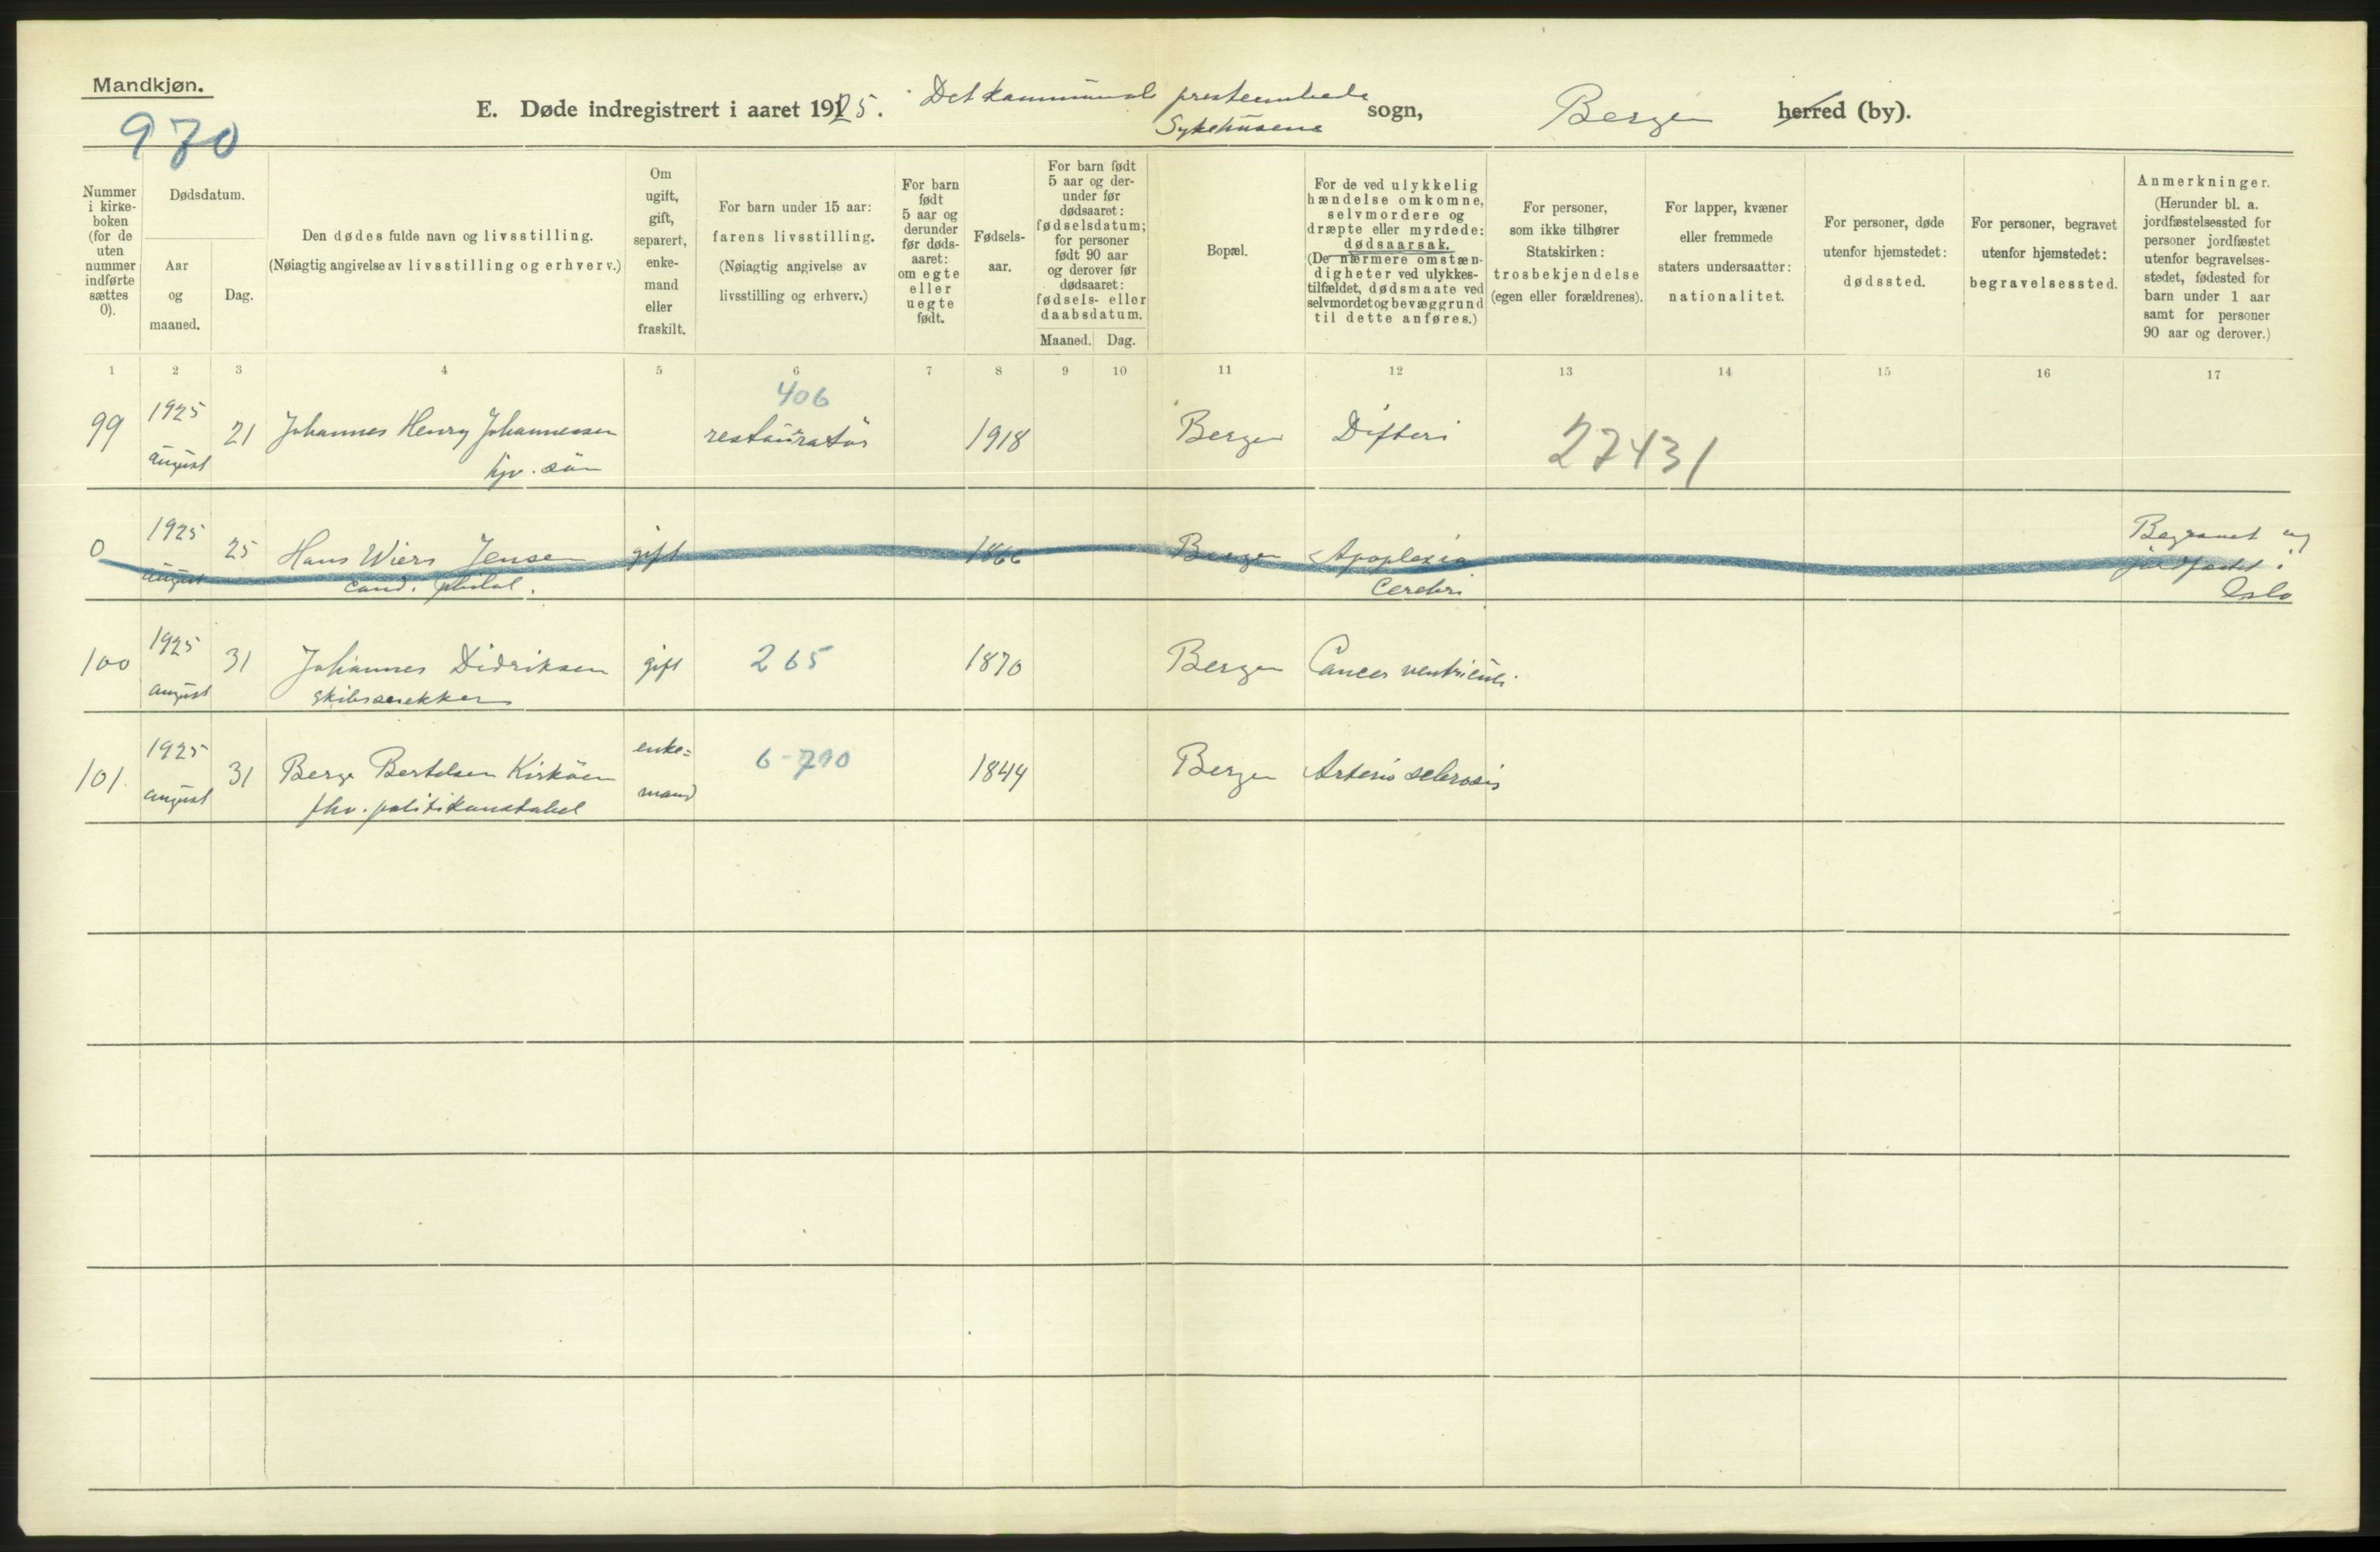 Mandkjøn.
970
E. Døde indregistrert i aaret 1925. Det kommunale presteembede sogn, Bergen herred (by).
Sykehusene
Nummer i kirkeboken (for de uten nummer indførte sættes 0).
Dødsdatum.
Aar og maaned.
Dag.
Den dødes fulde navn og livsstilling.
(Nøiagtig angivelse av livsstilling og erhverv.)
Om ugift, gift, separert, enkemand eller fraskilt.
For barn under 15 aar: farens livsstilling.
(Nøiagtig angivelse av livsstilling og erhverv.)
For barn født 5 aar og derunder før dødsaaret: om egte eller uegte født.
Fødselsaar.
For barn født 5 aar og derunder før dødsaaret: fødselsdatum; for personer født 90 aar og derover før dødsaaret: fødsels- eller daabsdatum.
Maaned. Dag.
Bopæl.
For de ved ulykkelig hændelse omkomne, selvmordere og dræpte eller myrdede: dødsaarsak.
(De nærmere omstændigheter ved ulykkestilfældet, dødsmaate ved selvmordet og bevæggrund til dette anføres.)
For personer, som ikke tilhører Statskirken: trosbekjendelse (egen eller forældrenes).
For lapper, kvæner eller fremmede staters undersaatter: nationalitet.
For personer, døde utenfor hjemstedet: dødssted.
For personer, begravet utenfor hjemstedet: begravelsessted.
Anmerkninger.
(Herunder bl. a. jordfæstelsessted for personer jordfæstet utenfor begravelsesstedet, fødested for barn under 1 aar samt for personer 90 aar og derover.)
1 2 3 4 5 6 7 8 9 10 11 12 13 14 15 16 17
406
99 1925 august 21 Johannes Henry Johannessen restauratør 1918 Bergen Difteri 27431
hjv. søn
0 1925 august 25 Hans Wiers Jensen gift 1866 Bergen Apoplexia Begravet og
cand. philol. Cerebri jordfæstet i
Oslo
100 1925 august 31 Johannes Didriksen gift 265 1870 Bergen Cancer ventriculi
101. 1925 august 31 Berge Bertelsen Kirköen enke= 6-790 1849 Bergen Arterio sclerosis
fhv. politikonstabel mand